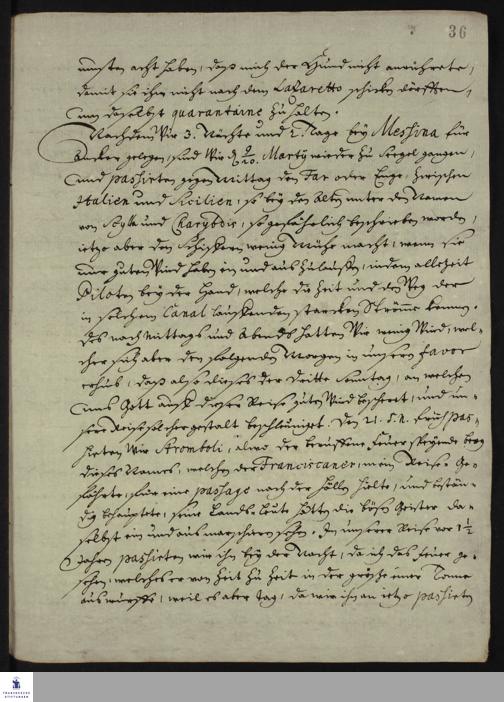 36
müsten acht haben, daß mich der Hund nicht anrührete,
damit sie ihn nicht nach dem Lazaretto schicken dörfften,
um daselbst quarantaine zu halten.
Nachdem Wir 3. Nächte und 2. Tage bey Messina für
Ancker gelegen, sind Wir d 9/20. Martij wieder zu Seegel gangen,
und passirten gegen Mittag den Far oder Enge, zwischen
Italien und Sicilien, so bey den Alten unter den Namen
von Scylla und Charybdis, so gefährlich beschrieben worden,
jetzo aber den Schiffern wenig Mühe macht, wenn sie
nur guten Wind haben ein und aus zu lauffen, indem allezeit
Piloten bey der Hand, welche die Zeit und den Weg der
in solchem Canal lauffenden starcken Ströme kennen.
Des nach Mittags und Abends hatten Wir wenig Wind, wel-
cher sich aber den folgenden Morgen in unsern favor
erhub, daß also dieses der dritte Sonntag, an welchen
uns Gott auff dieser Reise guten Wind bescheret, und un-
sere Reise solcher gestalt beschleuniget. Den 21. S. N. früh pas-
sirten Wir Stromboli, alwo der beruffene Feuer speyende berg
dieses Namens, welchen der Franciscaner, mein Reise-Ge-
fährte, für eine passage nach der Höllen hielte, und bestän-
dig behauptete, seine Lands-Leute hätten die bösen Geister da-
selbst ein und aus marschiren sehen. In unserer Reise vor 1 1/2
Jahren passirten wir ihn bey der Nacht, da ich das Feuer ge-
sehen, welches er von Zeit zu Zeit in der größe einer Tonne
auswurffe, weil es aber Tag, da wir ihn an jetzo passirten
FRANCKESCHE
STIFTUNGEN